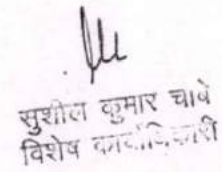 सुशील कुमार चावे
विशेष कार्याधिकारी